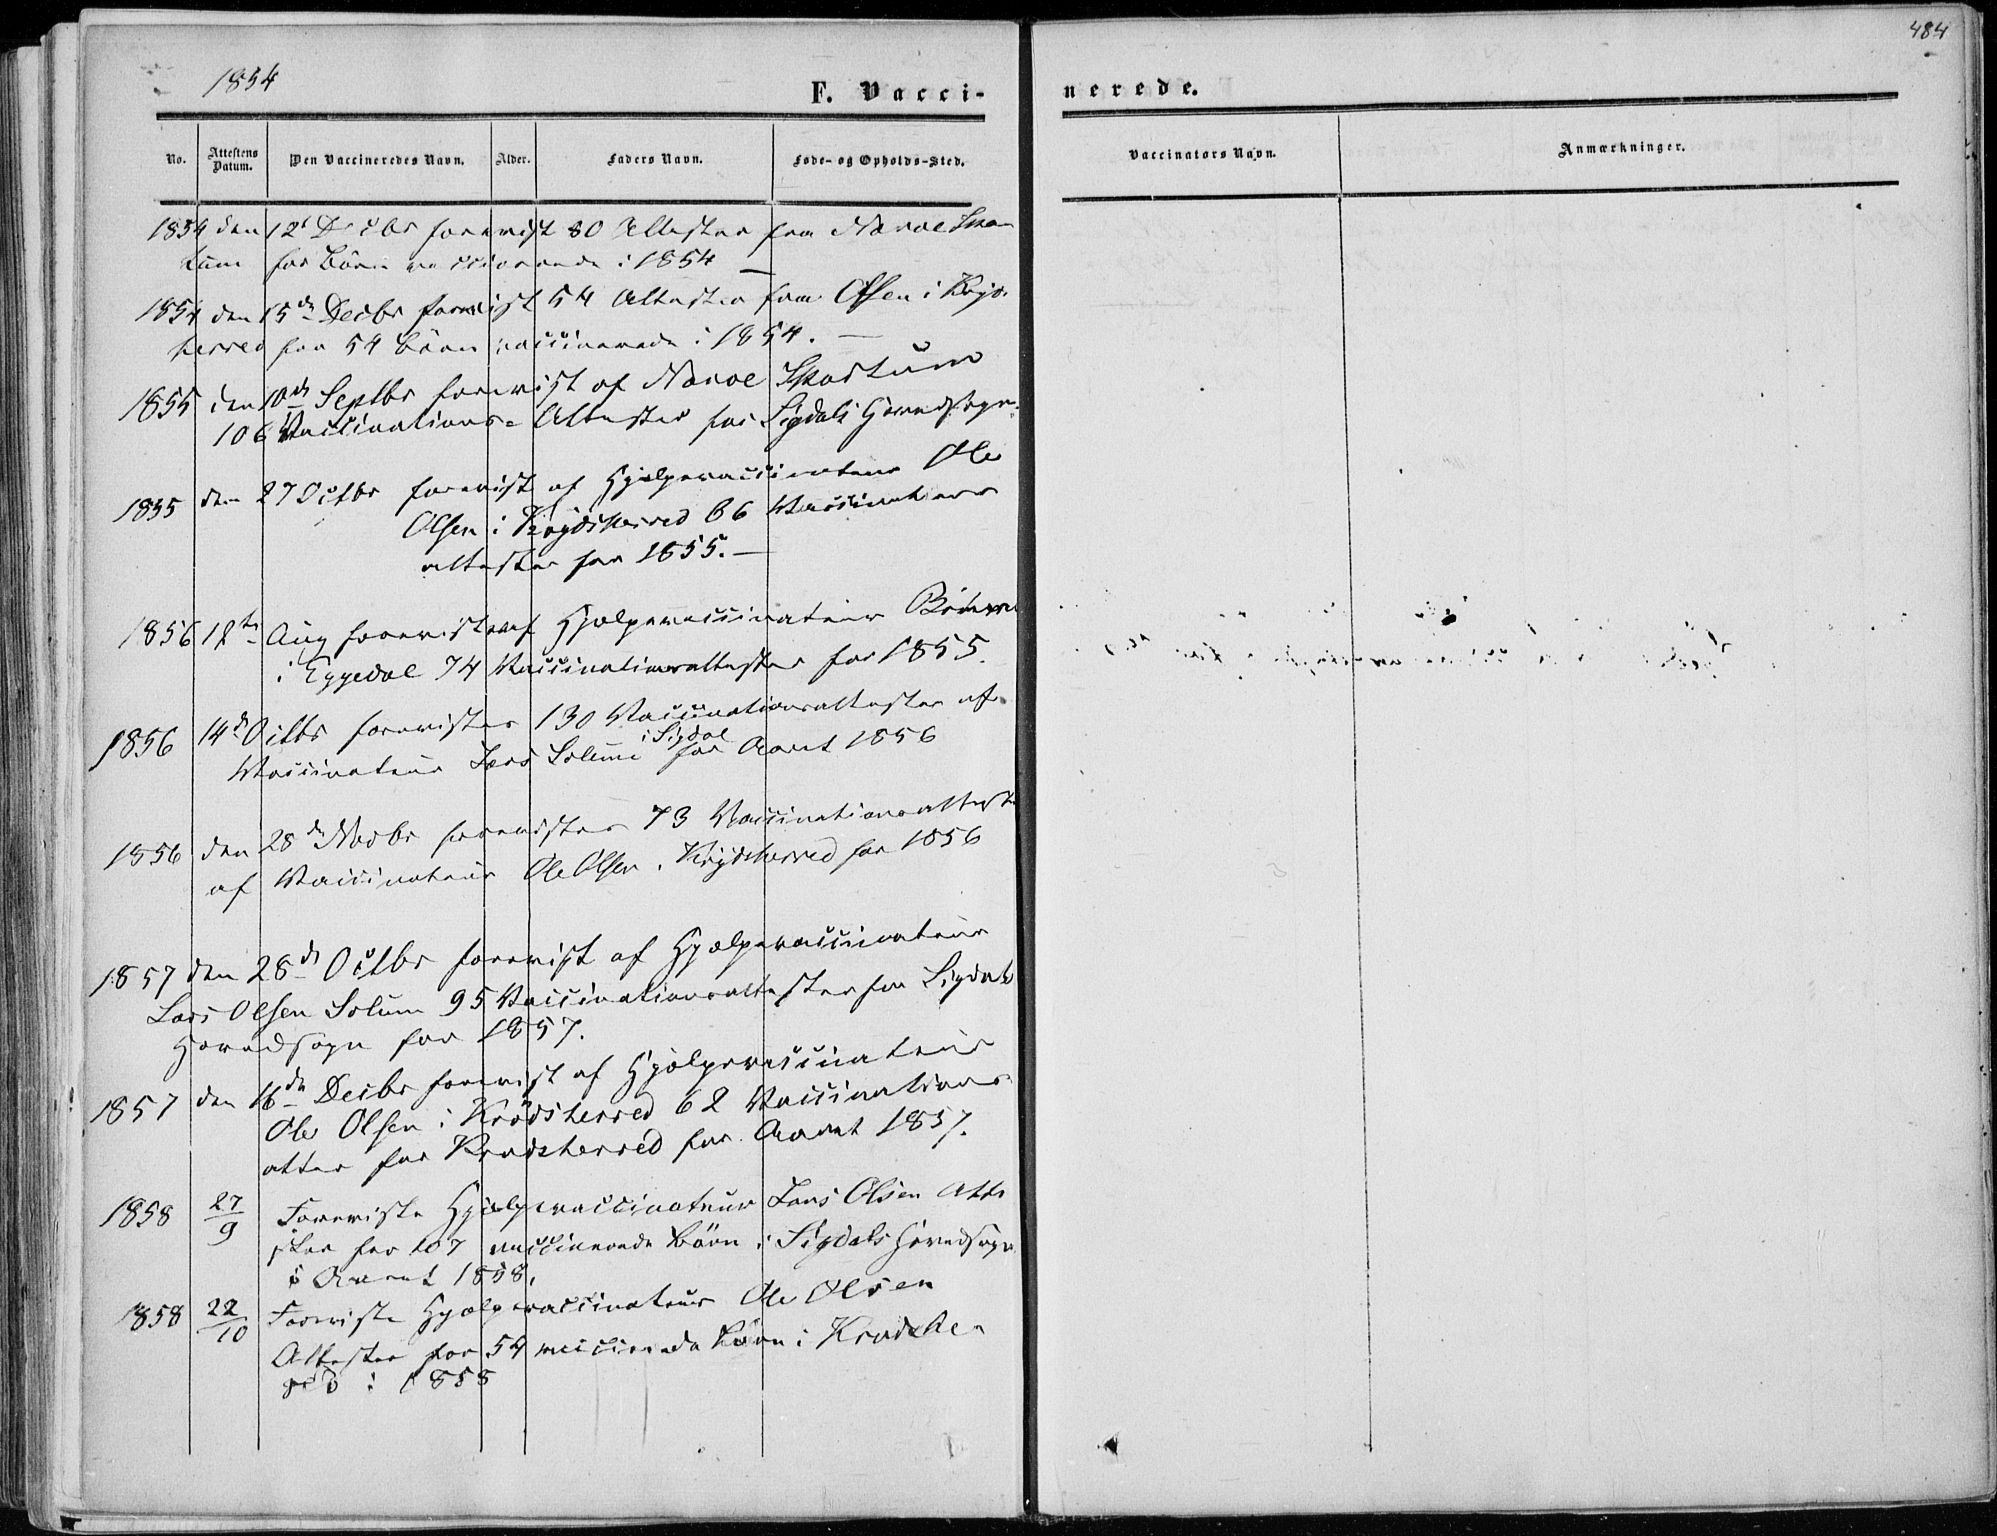 484
1854
F. Vacci-
nerede.
No.
Attestens Datum.
Den Vaccineredes Navn.
Alder.
Faders Navn.
Føde- og Opholds-Sted.
Vaccinators Navn.
Anmærkninger.
1854 den 12t Decbr forevist 80 Attester fra Narve Skar
tum for Børn vaccinerede i 1854 —
1854 den 15de Decbr forevist 54 Attester fra Olsen i Kryds-
herred for 54 Børn vaccinerede i 1854. —
1855 den 10de Septbr forevist af Narve Skartum
106 Vaccinations- Attester for Sigdals Hovedsogn.
1855 den 27 Octbr forevist af Hjælpevaccinateur Ole
Olsen i Krydsherred 66 Vaccinations
attester for 1855. —
1856 12te Aug forevist af Hjælpevaccinateur
i Eggedal 74 Vaccinationsattester for 1855.
1856 14de Octbr forevistes 130 Vaccinationsattester af
Vaccinateur Lars Solum i Sigdal for Aaret 1856
1856 den 28de Novbr forevistes 73 Vaccinationsattester
af Vaccinateur Ole Olsen i Krydsherred for 1856
1857 den 28de Octbr forevist af Hjælpevaccinateur
Lars Olsen Solum 95 Vaccinationsattester for Sigdals
Hovedsogn for 1857.
1857 den 16de Decbr forevist af Hjælpevaccinateur
Ole Olsen i Krødsherred 62 Vaccinations
atter for Krødsherred for Aaret 1857.
1858 27/9 Foreviste Hjælpevaccinateur Lars Olsen Atte
ster for 107 vaccinerede Børn i Sigdals Hovedsogn
i Aaret 1858.
1858 22/10 Foreviste Hjælpevaccinateur Ole Olsen
Attester for 54 vaccinerede Børn i Krødsher
red i 1858